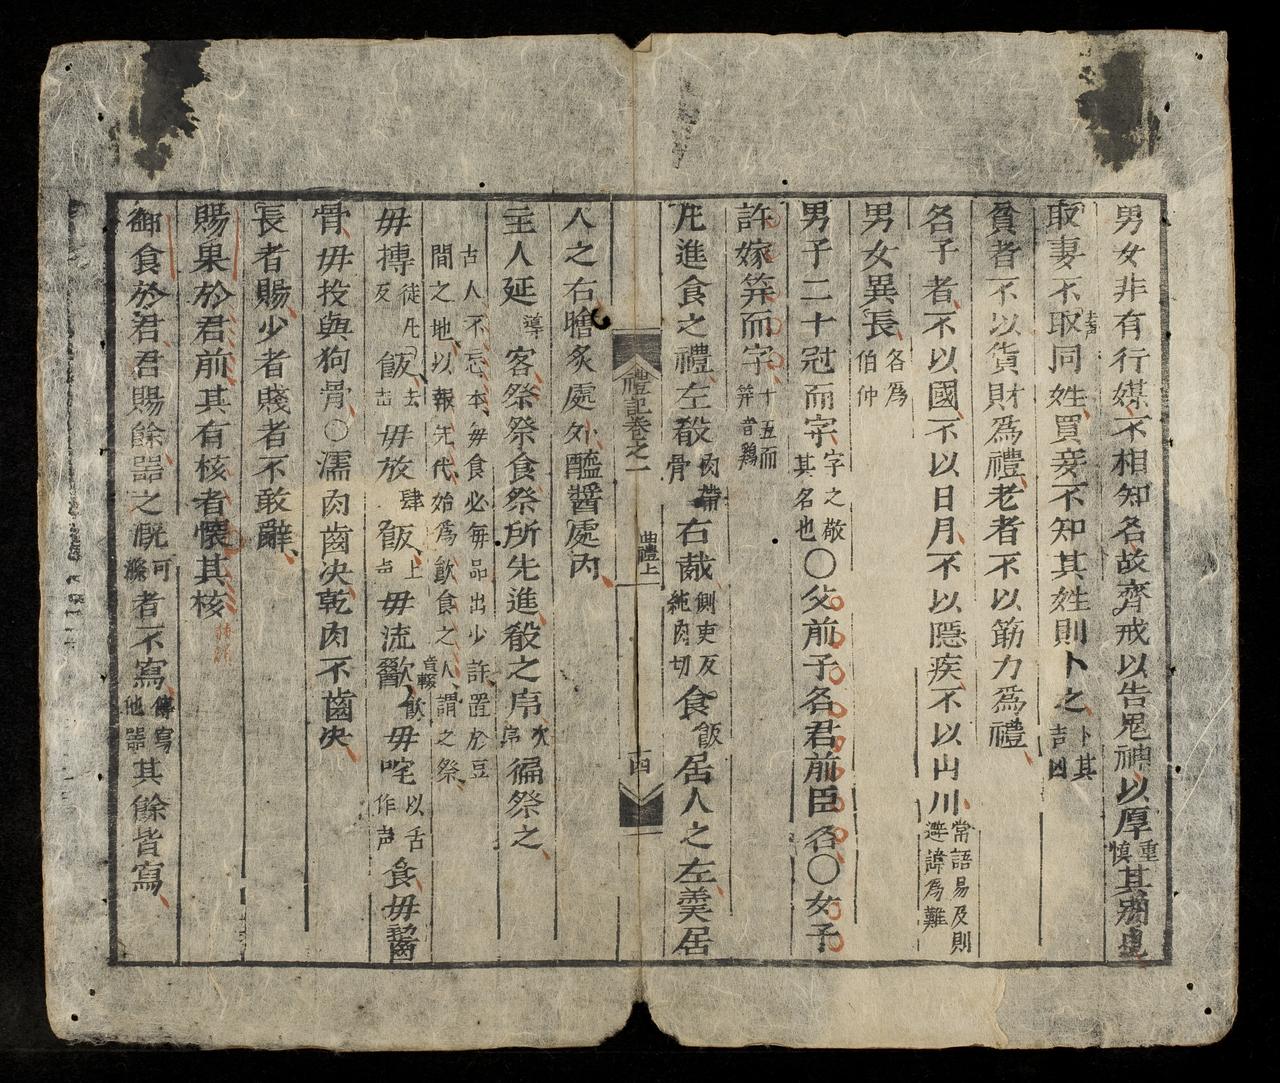 男女非有行媒不相知名故齊戒以告鬼神以厚重慎其別也
取妻不取去声同姓買妾不知其姓則卜之卜其吉凶
貧者不以貨財爲禮老者不以筋力爲禮
名子者不以國不以日月不以隱疾不以山川常語易及則避諱爲難
男女異長各爲伯仲
男子二十冠而字字之敬其名也〇父前子名君前臣名〇女子
許嫁笄而字十五而笄音鷄
凡進食之禮左殽肉帶骨右胾側吏反純肉切食飯居人之左羹居
禮記卷之一
曲禮上
十四
人之右膾炙處外醯醬處內
主人延導客祭祭食祭所先進殽之序次序徧祭之
古人不忘本每食必每品出少許置於豆
間之地以報先代始爲飮食之人謂之祭
毋摶徒凡反飯上去毋放肆飯上声毋流歠音輟飮毋咤以舌作声食毋齧
骨毋投與狗骨〇濡肉齒决乾肉不齒决
長者賜少者賤者不敢辭
賜果於君前其有核者懷其核
御食於君君賜餘器之漑可滌者不寫傳寫他器其餘皆寫